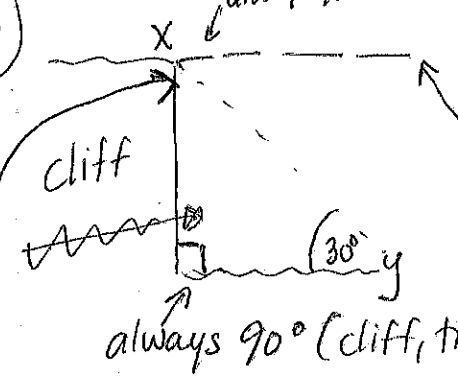 X
cliff
30° y
always 90° (cliff,